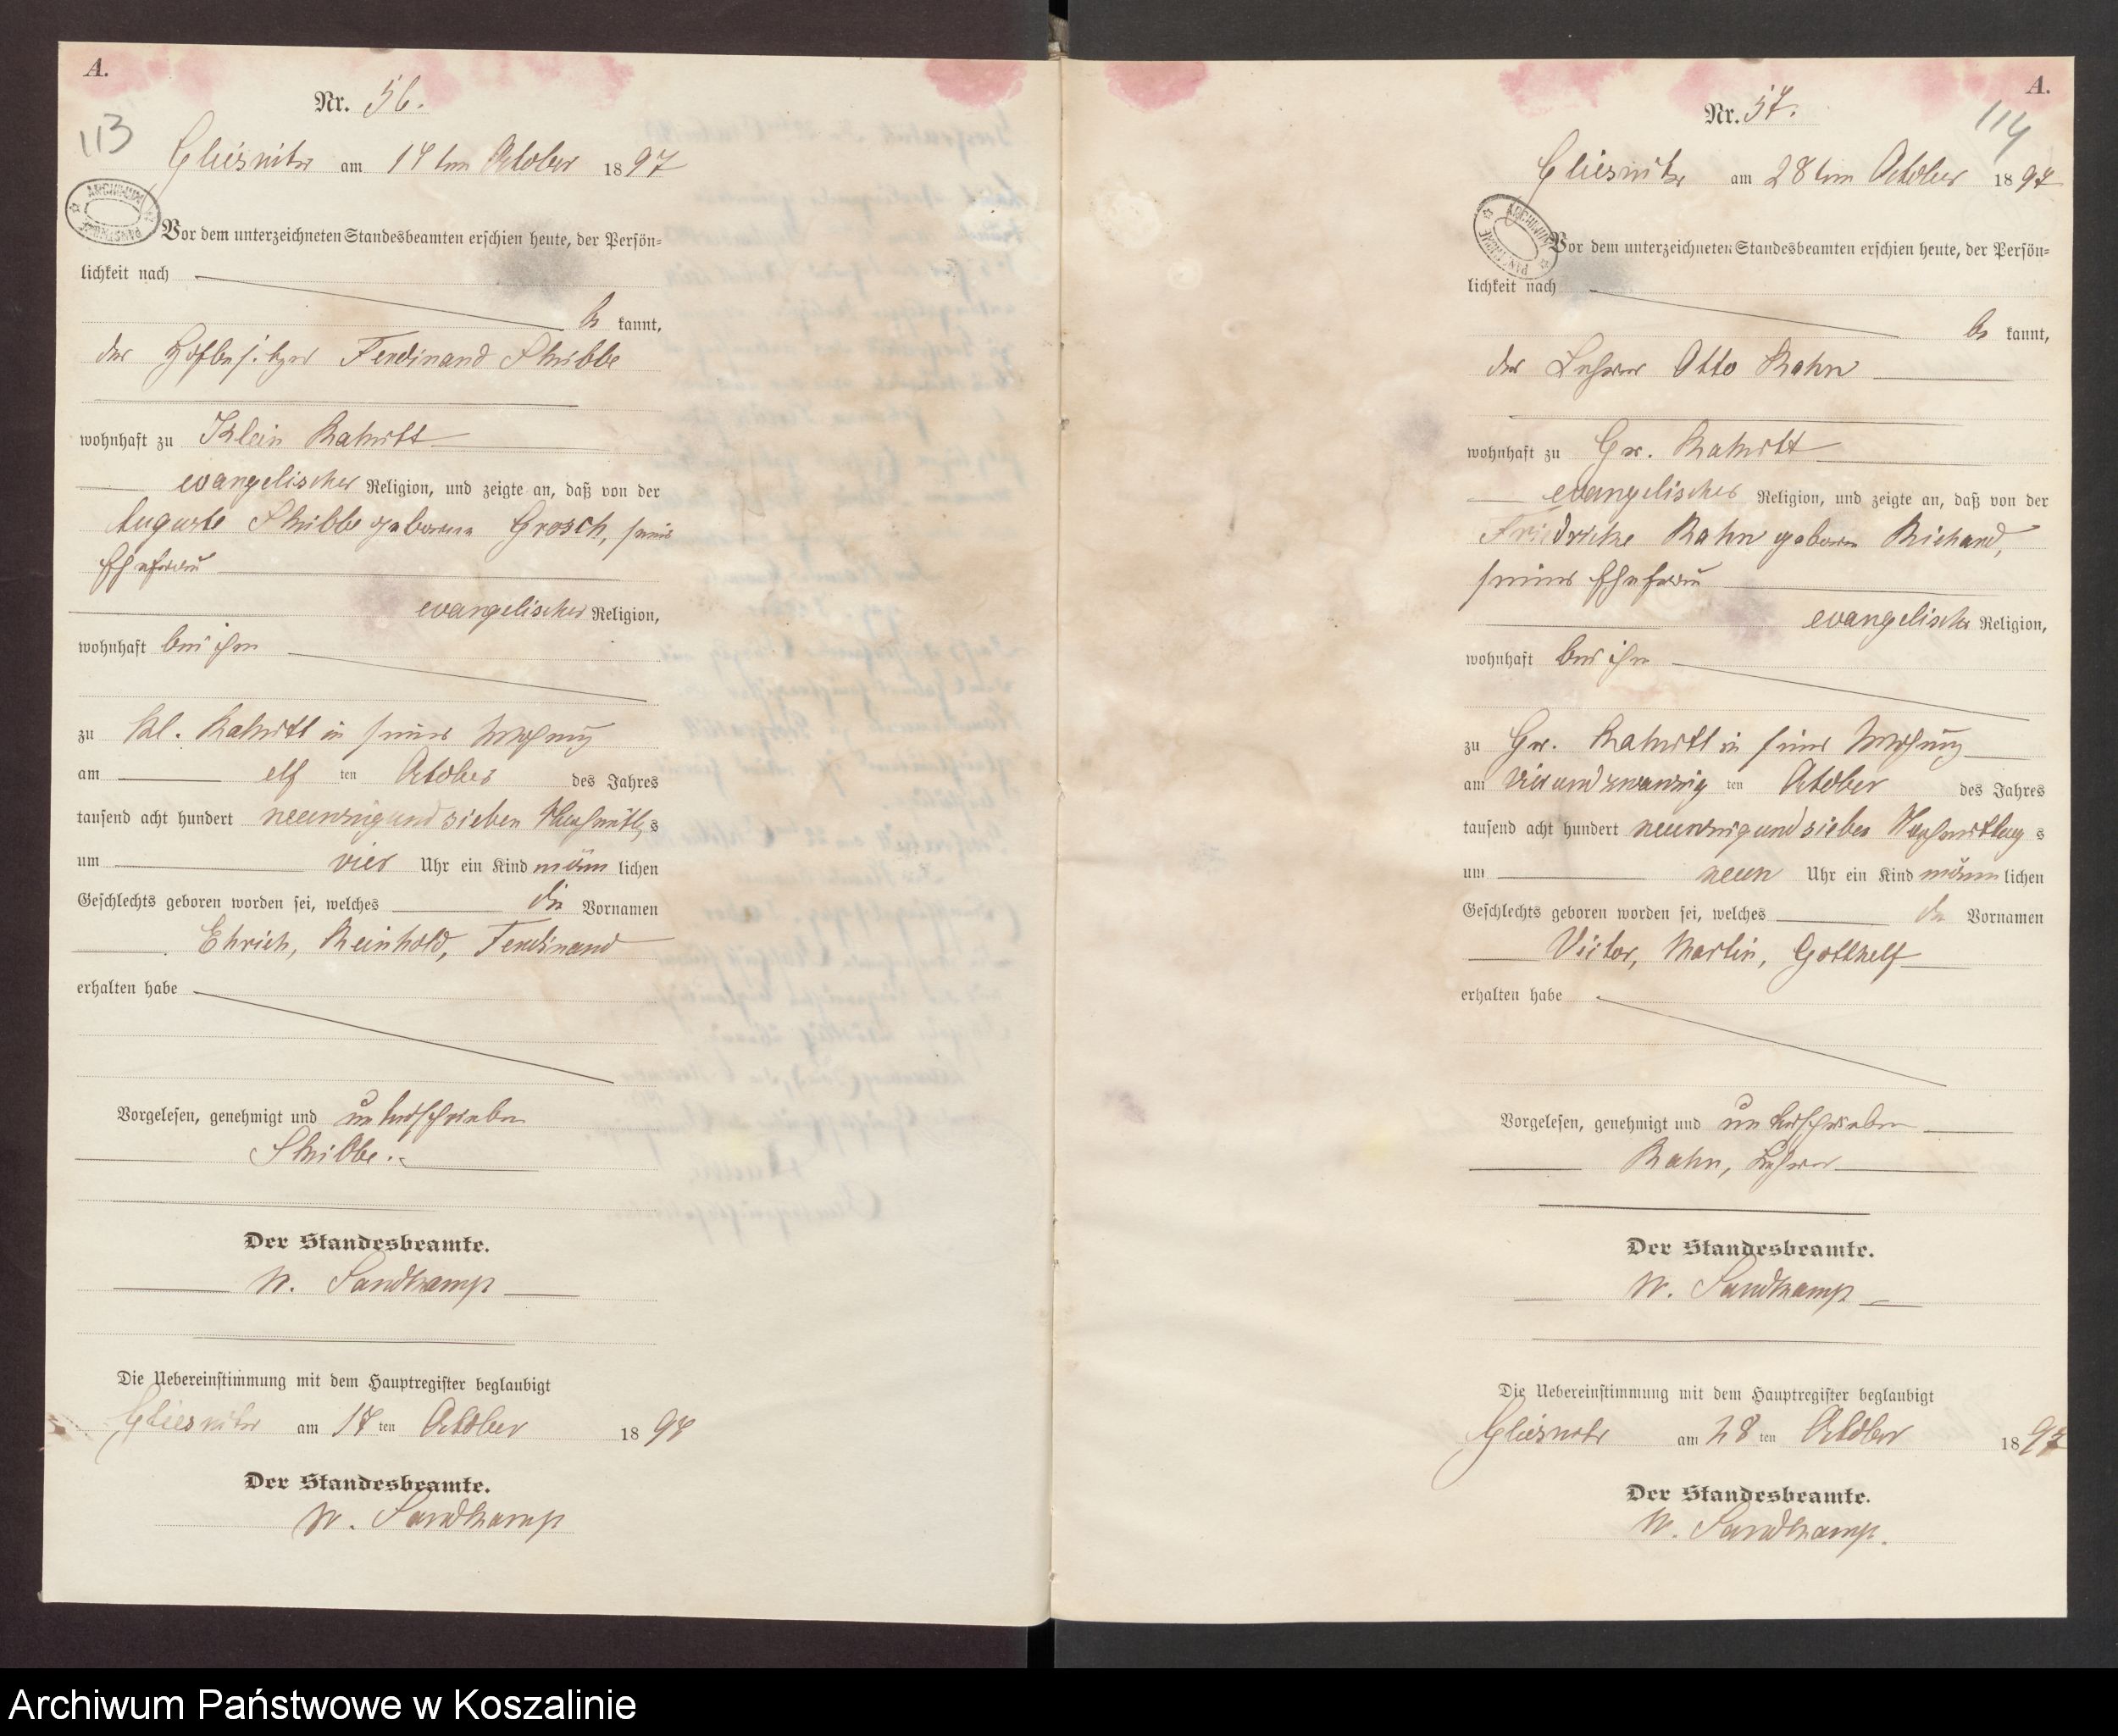 A.
Nr. 56.
113
Gliesnitz am 17ten October 1897
ARCHIWUM PAŃSTWOWE
Vor dem unterzeichneten Standesbeamten erschien heute, der Persön=
lichkeit nach
be kannt,
der Hofbesitzer Ferdinand Skibbe
wohnhaft zu Klein Rakitt
evangelischer Religion, und zeigte an, daß von der
Auguste Skibbe geborenen Grosch, seiner
Ehefrau
evangelischer Religion,
wohnhaft bei ihm
zu Kl. Rakitt in seiner Wohnung
am elf ten October des Jahres
tausend acht hundert neunzig und sieben Nachmittags
um vier Uhr ein Kind männ lichen
Geschlechts geboren worden sei, welches die Vornamen
Ehrich, Reinhold, Ferdinand
erhalten habe
Vorgelesen, genehmigt und unterschrieben
Skibbe.
Der Standesbeamte.
W. Sandkamp
Die Uebereinstimmung mit dem Hauptregister beglaubigt
Gliesnitz am 17 ten October 1897
Der Standesbeamte.
W. Sandkamp
A.
Nr. 57.
114
Gliesnitz am 28ten October 1897
ARCHIWUM PAŃSTWOWE
Vor dem unterzeichneten Standesbeamten erschien heute, der Persön=
lichkeit nach
be kannt,
der Lehrer Otto Rahn
wohnhaft zu Gr. Rakitt
evangelischer Religion, und zeigte an, daß von der
Friedricke Rahn geboren
seiner Ehefrau
evangelischer Religion,
wohnhaft bei ihm
zu Gr. Rakitt in seiner Wohnung
am vierundzwanzig ten October des Jahres
tausend acht hundert neunzig und sieben Nachmittag s
um neun Uhr ein Kind männ lichen
Geschlechts geboren worden sei, welches die Vornamen
Victor, Martin, Gotthelf
erhalten habe
Vorgelesen, genehmigt und unterschrieben
Rahn, Lehrer
Der Standesbeamte.
W. Sandkamp
Die Uebereinstimmung mit dem Hauptregister beglaubigt
Gliesnitz am 28 ten October 1897
Der Standesbeamte.
W. Sandkamp.
Archiwum Państwowe w Koszalinie